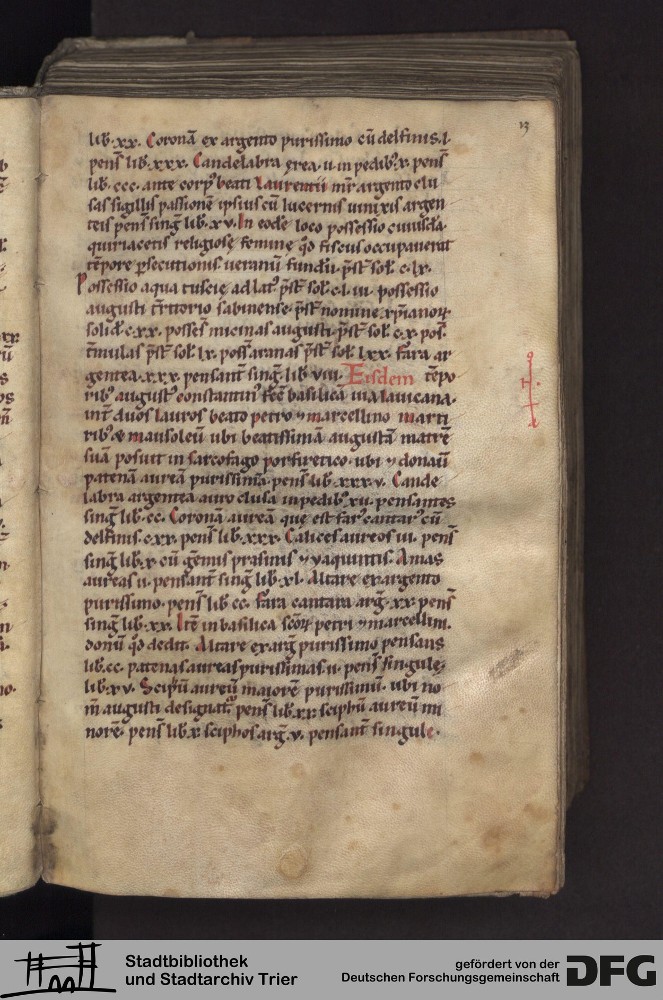 13
lib. xx. Coronā ex argento purissimo cū delfinis. l.
pens̄ lib. xxx. Candelabra erea. ii. in pedib; x. pens̄
lib. ccc. ante corp; beati Laurentii mr̄ argento clu
sas sigillis passionē ipsius cū lucernis argen
teis pens̄ sinḡ lib. xv. In eodē loco possessio cuiusdā.
quiriacetis religiosę feminę qd̄ fiscus occupauerat
tēpore psecutionis ueranū fundū. p̄st̄ sol. c. lx.
Possessio aqua tuscię ad lat; p̄st̄ sol. c. l. iii. possessio
augusti tr̄ritorio sabinense. p̄st̄ nomine xp̄ianoꝝ
solid. c. xx. posses̄ micinas augusti. p̄st̄ sol. c. x. pos̄.
tr̄mulas p̄st̄ sol. lx. poss̄ aranas p̄st̄ sol. lxx. fara ar
gentea. xxx. pensant̄ sinḡ. lib viii. Eisdem tēpo
rib; august; constantin; fēc̄ basilicā uia lauicana.
int̄ duos lauros beato petro ⁊ marcellino marti
rib; & mausoleū ubi beatissimā augustā matrē
suā posuit in sarcofago porfiretico. ubi ⁊ donauī
patenā aureā purissimā. pens̄ lib. xxxv. Cande
labra argentea auro clusa in pedib; xii. pensantes
sinḡ lib. cc. Coronā aureā que est far; cantar; cū
delfinis. cxx. pens̄ lib. xxx. Calices aureos iii. pens̄
sinḡ lib. x. cū gēmis prasinis ⁊ yaquintis. Amas
aureas ii. pensant̄ sinḡ lib. xl. Altare ex argento
purissimo. pens̄ lib cc. fara cantara arg̃. xx. pens̄
sinḡ lib. xx. Itē in basilica scōꝝ petri ⁊ marcellini.
donū qd̄ dedit. Altare ex arg̃ purissimo pensans
lib. cc. patenas aureas purissimas ii. pens̄ singulę
lib. xv. Sciphū aureū maiorē purissimū. ubi no
m̄ augusti designat̄. pens̄ lib. xx sciphū aureū mi
norē. pens̄ lib. x sciphos arg̃. v. pensant̄ singulę.
Stadtbibliothek
und Stadtarchiv Trier
gefördert von der
Deutschen Forschungsgemeinschaft
DFG